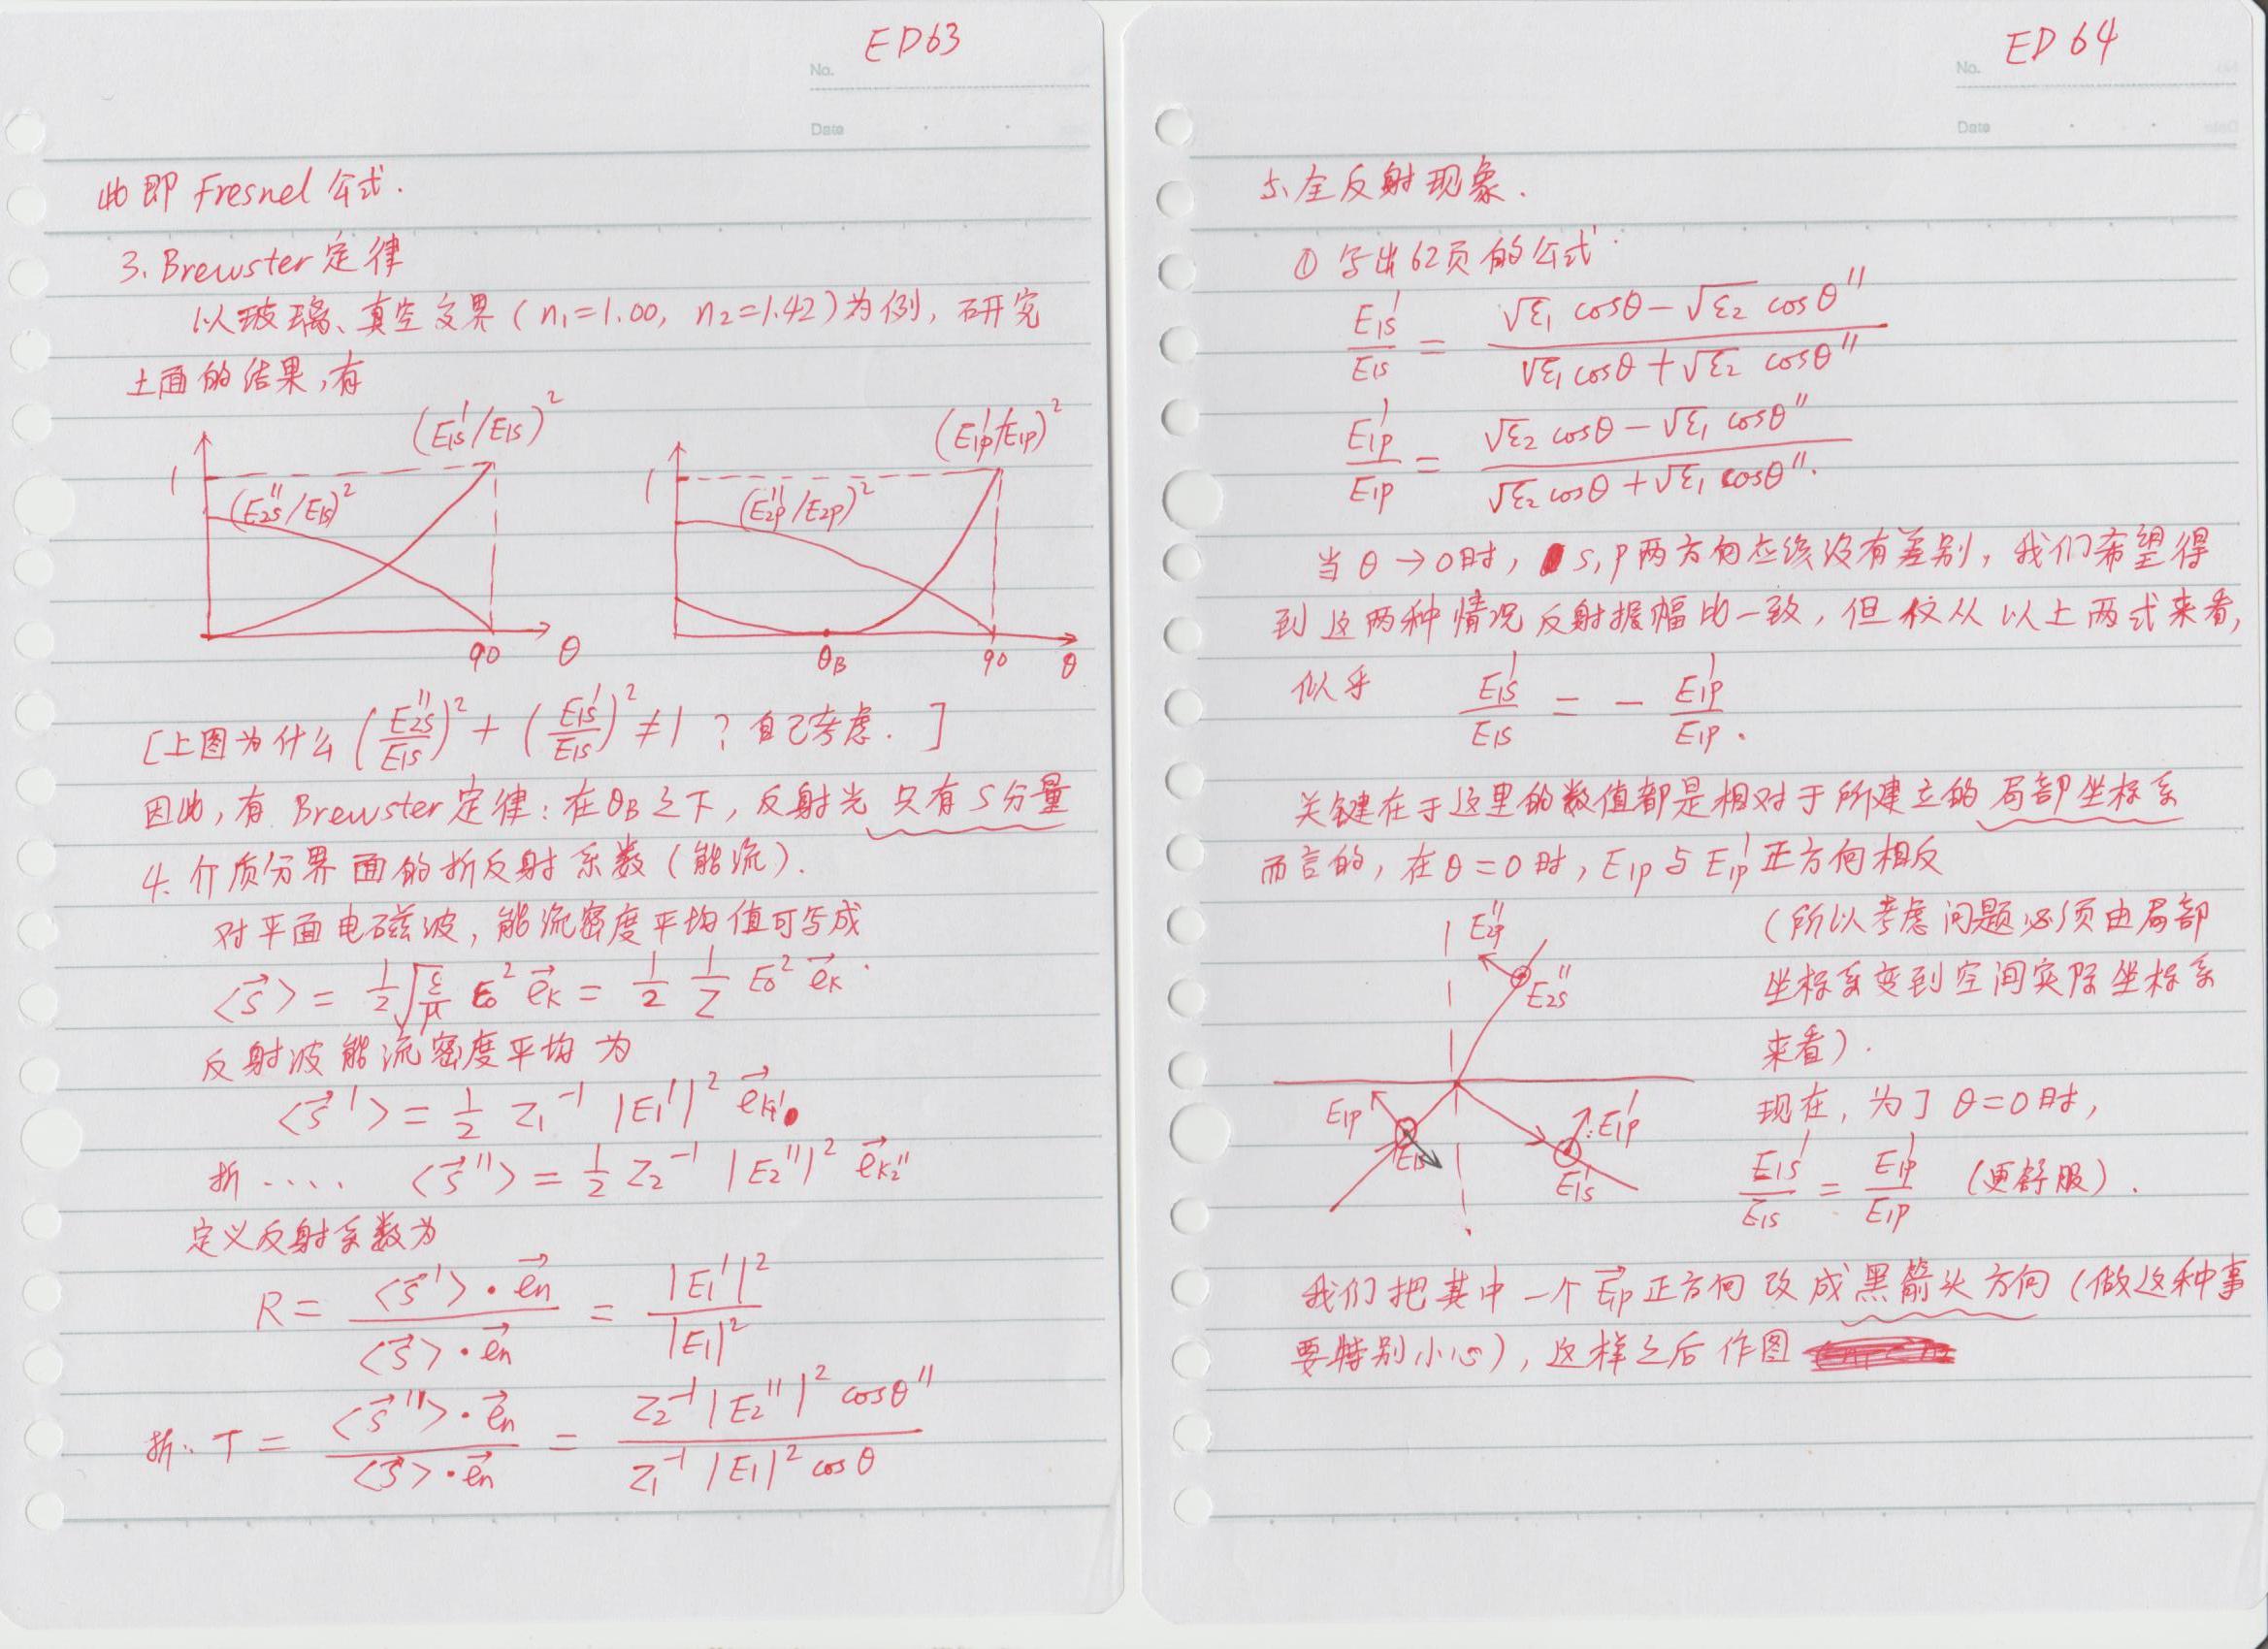 ED63
No.
Date
此即 Fresnel 公式.
3. Brewster 定律
以玻璃、真空交界 ( n₁=1.00, n₂=1.42 ) 为例, 研究
上面的结果, 有
(E₁s'/E₁s)²
1
(E₂s''/E₁s)²
90
θ
(E₁p'/E₁p)²
1
(E₂p''/E₂p)²
θB
90
θ
[上图为什么 (E₂s''/E₁s)² + (E₁s'/E₁s)² ≠ 1 ? 自己考虑. ]
因此, 有 Brewster 定律: 在θB之下, 反射光 只有S分量
4. 介质分界面的折反射系数 (能流).
对平面电磁波, 能流密度平均值可写成
⟨S⃗⟩ = 1/2 √(ε/μ) E₀² e⃗k = 1/2 1/Z E₀² e⃗k .
反射波能流密度平均为
⟨S⃗'⟩ = 1/2 Z₁⁻¹ |E₁'|² e⃗k₁'
折 .... ⟨S⃗''⟩ = 1/2 Z₂⁻¹ |E₂''|² e⃗k₂''
定义反射系数为
R = ⟨S⃗'⟩·e⃗n / ⟨S⃗⟩·e⃗n = |E₁'|² / |E₁|²
折.. T = ⟨S⃗''⟩·e⃗n / ⟨S⃗⟩·e⃗n = Z₂⁻¹ |E₂''|² cosθ'' / Z₁⁻¹ |E₁|² cosθ
ED 64
No.
Date
5. 全反射现象.
① 写出62页的公式.
E₁s'/E₁s = (√ε₁ cosθ − √ε₂ cosθ'') / (√ε₁ cosθ + √ε₂ cosθ'')
E₁p'/E₁p = (√ε₂ cosθ − √ε₁ cosθ'') / (√ε₂ cosθ + √ε₁ cosθ'').
当 θ → 0 时, s, p 两方向应该没有差别, 我们希望得
到这两种情况反射振幅比一致, 但仅从以上两式来看,
似乎 E₁s'/E₁s = − E₁p'/E₁p .
关键在于这里的数值都是相对于所建立的 局部坐标系
而言的, 在θ=0时, E₁p 与 E₁p' 正方向相反
(所以考虑问题必须由局部
坐标系变到空间实际坐标系
来看).
E₂p''
E₂s''
E₁p
E₁s
E₁p'
E₁s'
现在, 为了 θ=0 时,
E₁s'/E₁s = E₁p'/E₁p (更舒服).
我们把其中一个 E⃗₁p 正方向改成黑箭头方向 (做这种事
要特别小心), 这样之后作图